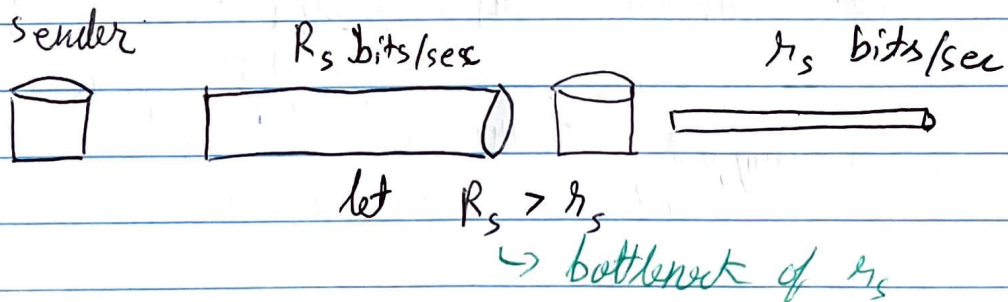 sender
R_s bits/sec
r_s bits/sec
let R_s > r_s
↳ bottleneck of r_s